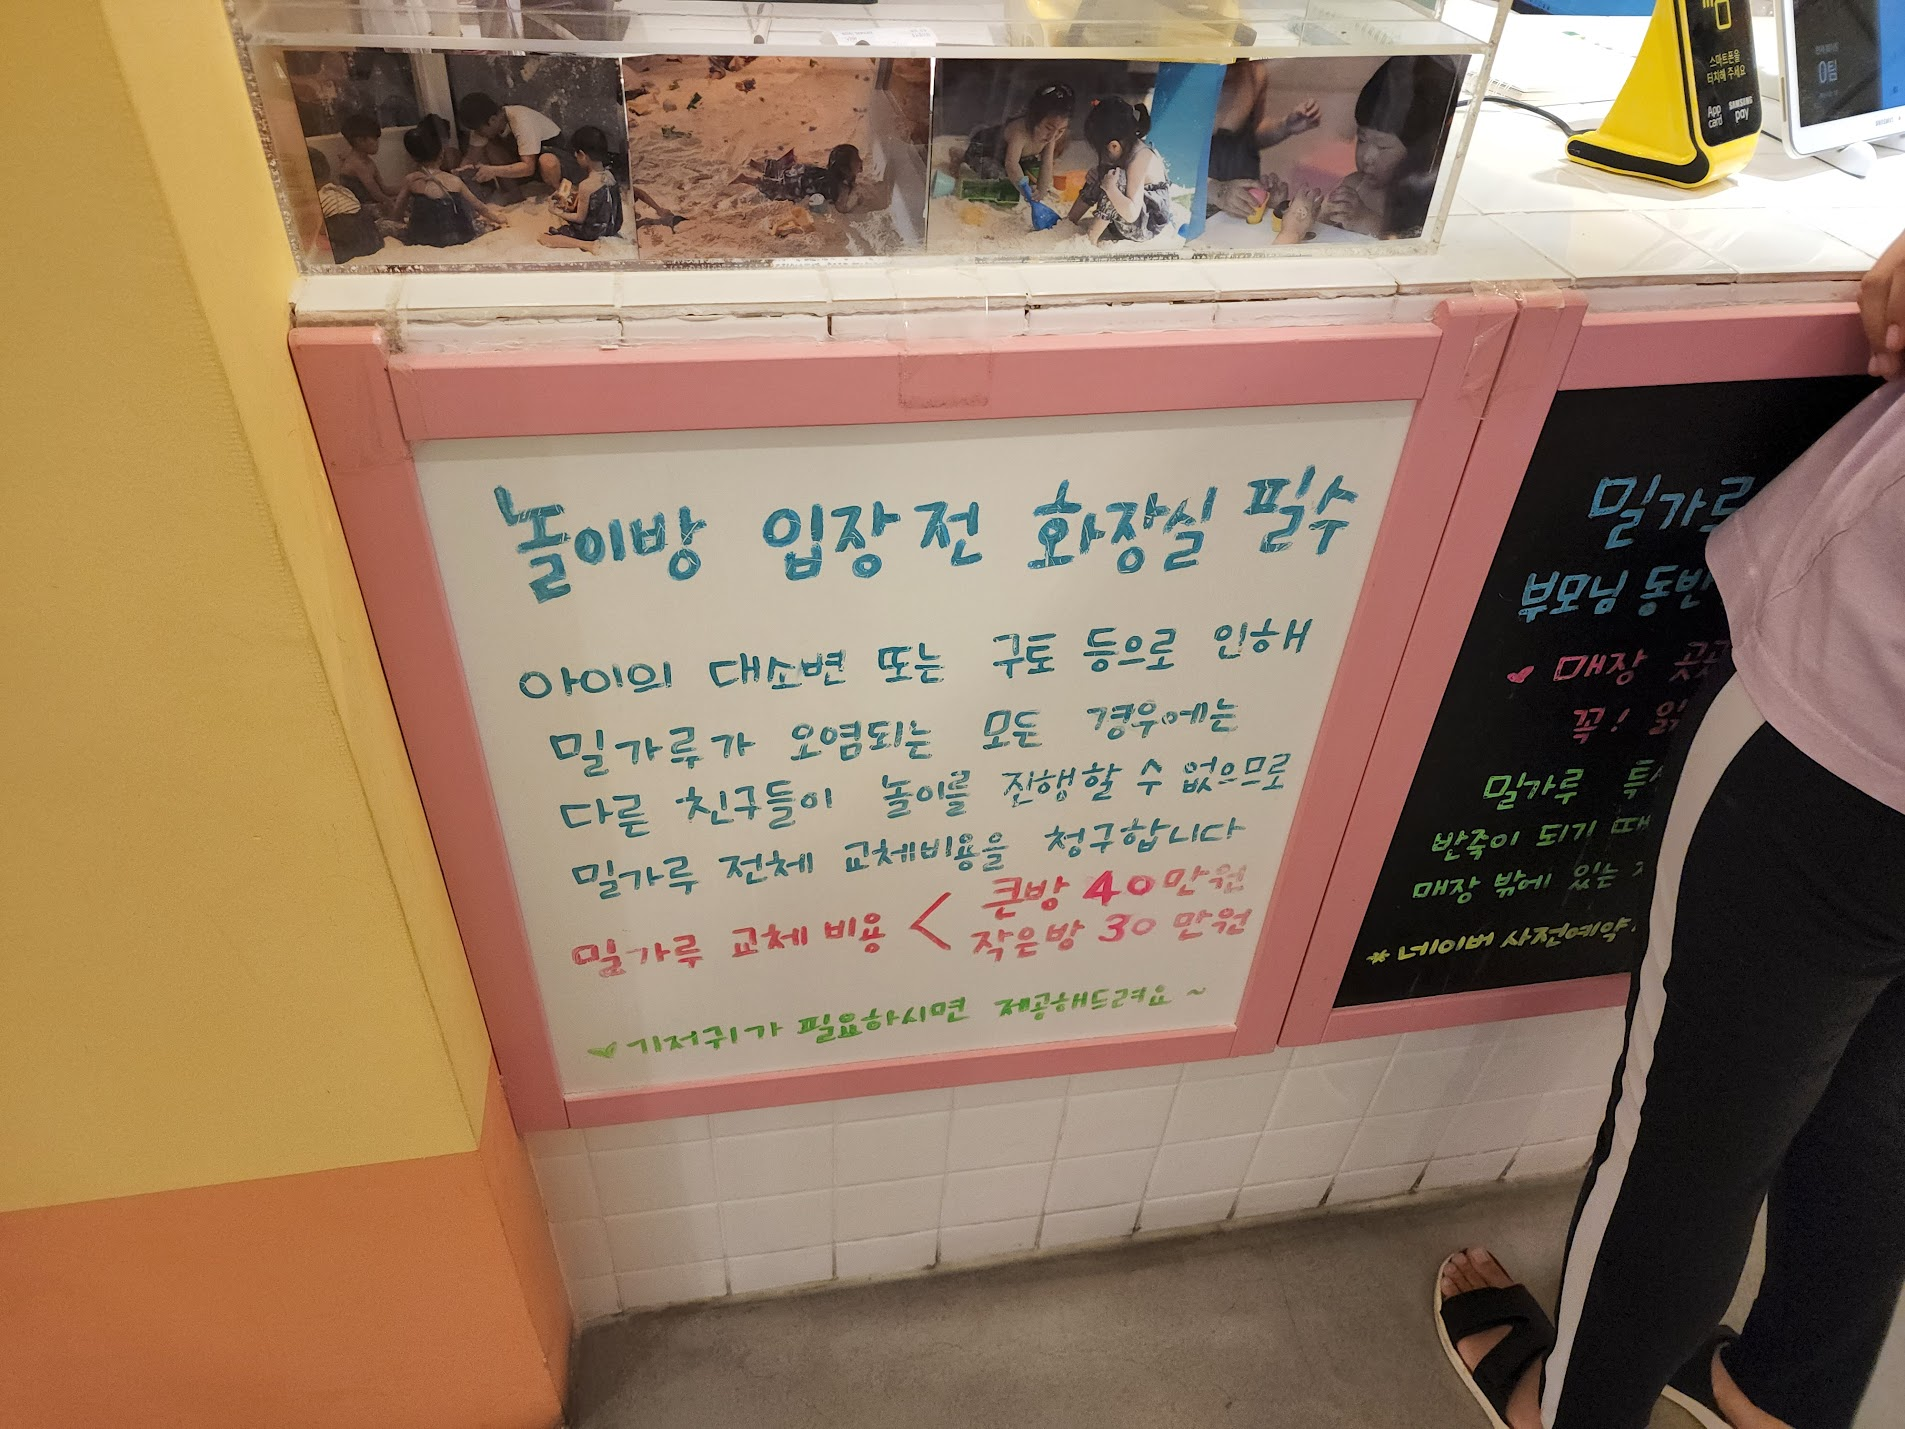 스마트폰을
터치해 주세요
App
card
SAMSUNG
pay
0팀
놀이방 입장 전 화장실 필수
아이의 대소변 또는 구토 등으로 인해
밀가루가 오염되는 모든 경우에는
다른 친구들이 놀이를 진행할 수 없으므로
밀가루 전체 교체비용을 청구합니다
밀가루 교체 비용 < 큰방 40만원
작은방 30만원
♥ 기저귀가 필요하시면 제공해드려요 ~
밀가루
부모님 동반
♥ 매장 곳곳
꼭! 읽
밀가루
반죽이 되기 때
매장 밖에 있는
* 네이버 사전예약